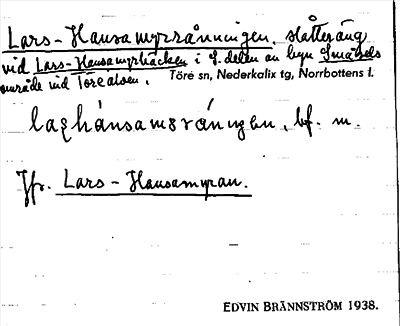 Lars-Hansamyrrånningen, slåtteräng
vid Lars-Hansamyrbäcken i S. delen av byn Småsels
område vid Töreälven. Töre sn, Nederkalix tg, Norrbottens l.
Jfr. Lars-Hansamyran.
EDVIN BRÄNNSTRÖM 1938.